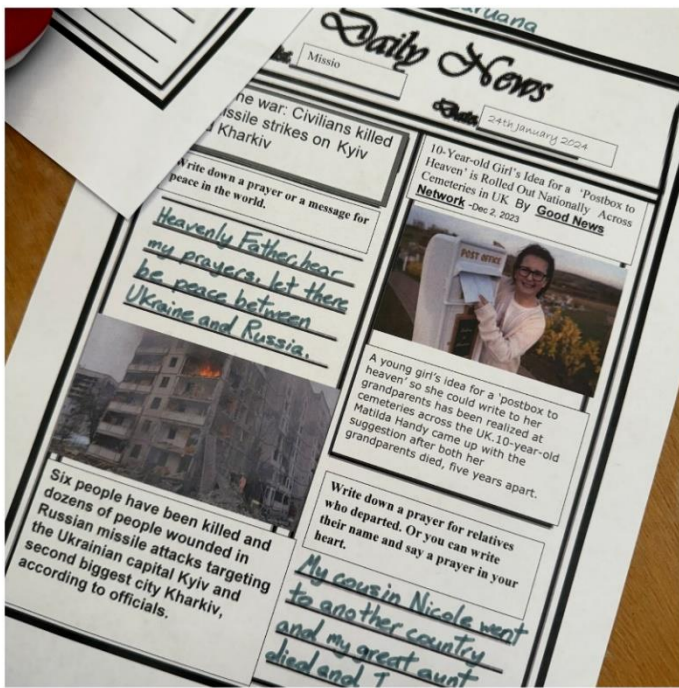 aruana
Daily News
Missio
Date:
24th January 2024
ne war: Civilians killed
issile strikes on Kyiv
d Kharkiv
Write down a prayer or a message for
peace in the world.
Heavenly Father, hear
my prayers, let there
be peace between
Ukraine and Russia.
Six people have been killed and
dozens of people wounded in
Russian missile attacks targeting
the Ukrainian capital Kyiv and
second biggest city Kharkiv,
according to officials.
10-Year-old Girl's Idea for a 'Postbox to
Heaven' is Rolled Out Nationally Across
Cemeteries in UK By Good News
Network -Dec 2, 2023
POST OFFICE
A young girl's idea for a 'postbox to
heaven' so she could write to her
grandparents has been realized at
cemeteries across the UK.10-year-old
Matilda Handy came up with the
suggestion after both her
grandparents died, five years apart.
Write down a prayer for relatives
who departed. Or you can write
their name and say a prayer in your
heart.
My cousin Nicole went
to another country
and my great aunt
died and I